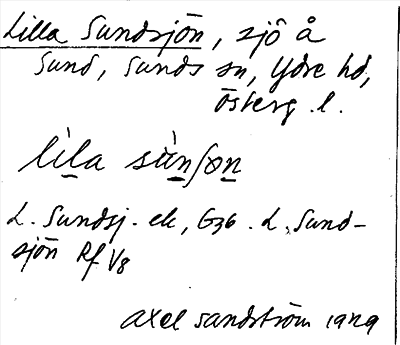 Lilla Sundsjön, sjö å
Sund, Sunds sn, Ydre hd,
Österg. l.
lìla sùnʃon
L. Sundsj. ek, G36. L. Sund-
sjön Rf V8
Axel Sandström 1929